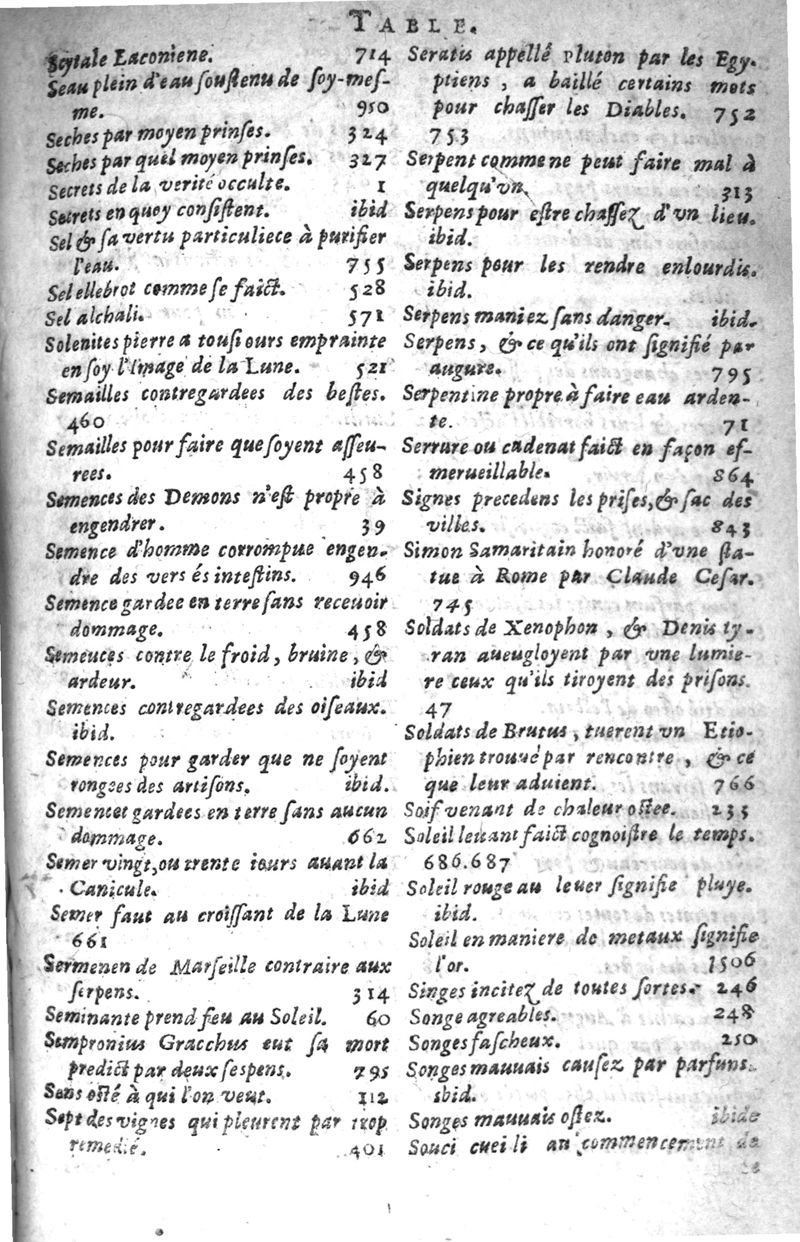 TABLE.
Scytale Laconiene. 714
Seau plein d'eau soustenu de soy-mes-
me. 950
Seches par moyen prinses. 324
Seches par quel moyen prinses. 327
Secrets de la verité occulte. 1
Secrets en quoy consistent. ibid
Sel & sa vertu particuliece à purifier
l'eau. 755
Sel ellebrot comme se faict. 528
Sel alchali. 571
Solenites pierre a tousiours emprainte
en soy l'Image de la Lune. 521
Semailles contregardees des bestes.
460
Semailles pour faire que soyent asseu-
rees. 458
Semences des Demons n'est propre à
engendrer. 39
Semence d'homme corrompue engen-
dre des vers és intestins. 946
Semence gardee en terre sans receuoir
dommage. 458
Semeuces contre le froid, bruine, &
ardeur. ibid
Semences contregardees des oiseaux.
ibid.
Semences pour garder que ne soyent
rongees des artisons. ibid.
Semencet gardees en terre sans aucun
dommage. 662
Semer vingt, ou trente iours auant la
Canicule. ibid
Semer faut au croissant de la Lune
661
Sermenen de Marseille contraire aux
serpens. 314
Seminante prend feu au Soleil. 60
Sempronius Gracchus eut sa mort
predict par deux sespens. 795
Sens osté à qui l'on veut. 112
Sept des vignes qui pleurent par trop
remedié. 401
Seratis appellé pluton par les Egy-
ptiens, a baillé certains mots
pour chasser les Diables. 752
753
Serpent comme ne peut faire mal à
quelqu'vn. 313
Serpens pour estre chassez d'vn lieu.
ibid.
Serpens pour les rendre enlourdis.
ibid.
Serpens maniez sans danger. ibid.
Serpens, & ce qu'ils ont signifié par
augure. 795
Serpentine propre à faire eau arden-
te. 71
Serrure ou cadenat faict en façon es-
merueillable. 864
Signes precedens les prises, & sac des
villes. 843
Simon Samaritain honoré d'vne sta-
tue à Rome par Claude Cesar.
745
Soldats de Xenophon, & Denis ty-
ran aueugloyent par vne lumie-
re ceux qu'ils tiroyent des prisons.
47
Soldats de Brutus, tuerent vn Etio-
phien trouué par rencontre, & ce
que leur aduient. 766
Soif venant de chaleur ostee. 235
Soleil leuant faict cognoistre le temps.
686.687
Soleil rouge au leuer signifie pluye.
ibid.
Soleil en maniere de metaux signifie
l'or. 1506
Singes incitez de toutes sortes. 246
Songe agreables. 248
Songes fascheux. 250
Songes mauuais causez par parfuns.
ibid.
Songes mauuais ostez. ibide
Souci cueili au commencement de